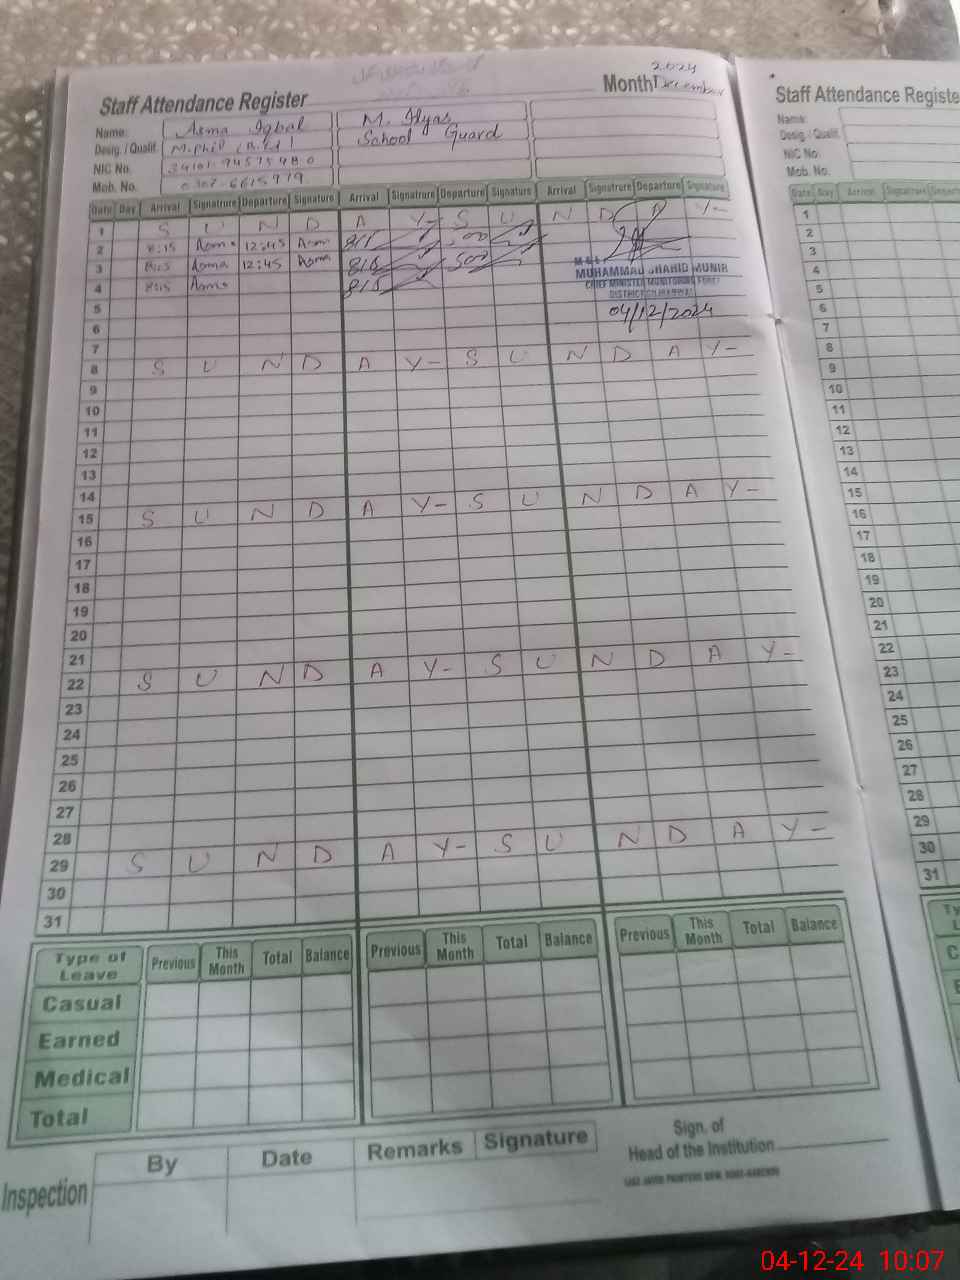 2024
Staff Attendance Register Month December
Name: Asma Iqbal M. Ilyas
Desig. / Qualif. M.Phil (B.Ed) School Guard
NIC No.
Mob. No.
Date Day Arrival Signatrure Departure Signature Arrival Signatrure Departure Signature Arrival Signatrure Departure Signature
1 S U N D A Y- S U N D A Y-
2 8:15 Asma 12:45 Asma 815 500
3 8:15 Asma 12:45 Asma 815 500
4 8:15 Asma 815
MUHAMMAD SHAHID MUNIR
CHIEF MINISTER MONITORING FORCE
04/12/2024
5
6
7
8 S U N D A Y- S U N D A Y-
9
10
11
12
13
14
15 S U N D A Y- S U N D A Y-
16
17
18
19
20
21
22 S U N D A Y- S U N D A Y-
23
24
25
26
27
28
29 S U N D A Y- S U N D A Y-
30
31
Type of Leave Previous This Month Total Balance Previous This Month Total Balance Previous This Month Total Balance
Casual
Earned
Medical
Total
Inspection By Date Remarks Signature
Sign. of
Head of the Institution
Staff Attendance Registe
Name:
Desig. / Qualif.
NIC No.
Mob. No.
Date Day Arrival Signatrure
1
2
3
4
5
6
7
8
9
10
11
12
13
14
15
16
17
18
19
20
21
22
23
24
25
26
27
28
29
30
31
04-12-24 10:07